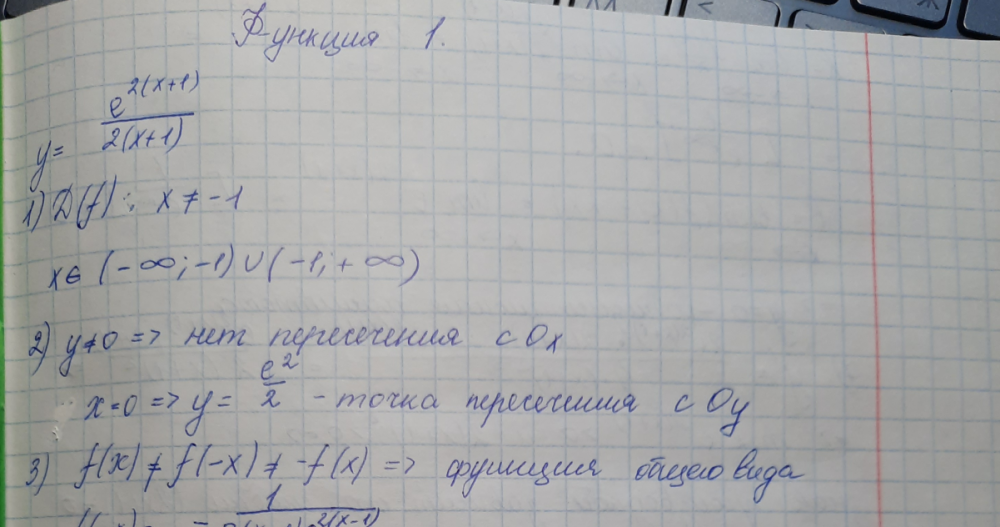 Функция 1.
y = e^{2(x+1)} / 2(x+1)
1) D(f): x ≠ -1
x ∈ (-∞; -1) ∪ (-1; +∞)
2) y≠0 => нет пересечения с Ox
x=0 => y = e^2 / 2 - точка пересечения с Oy
3) f(x) ≠ f(-x) ≠ -f(x) => функция общего вида